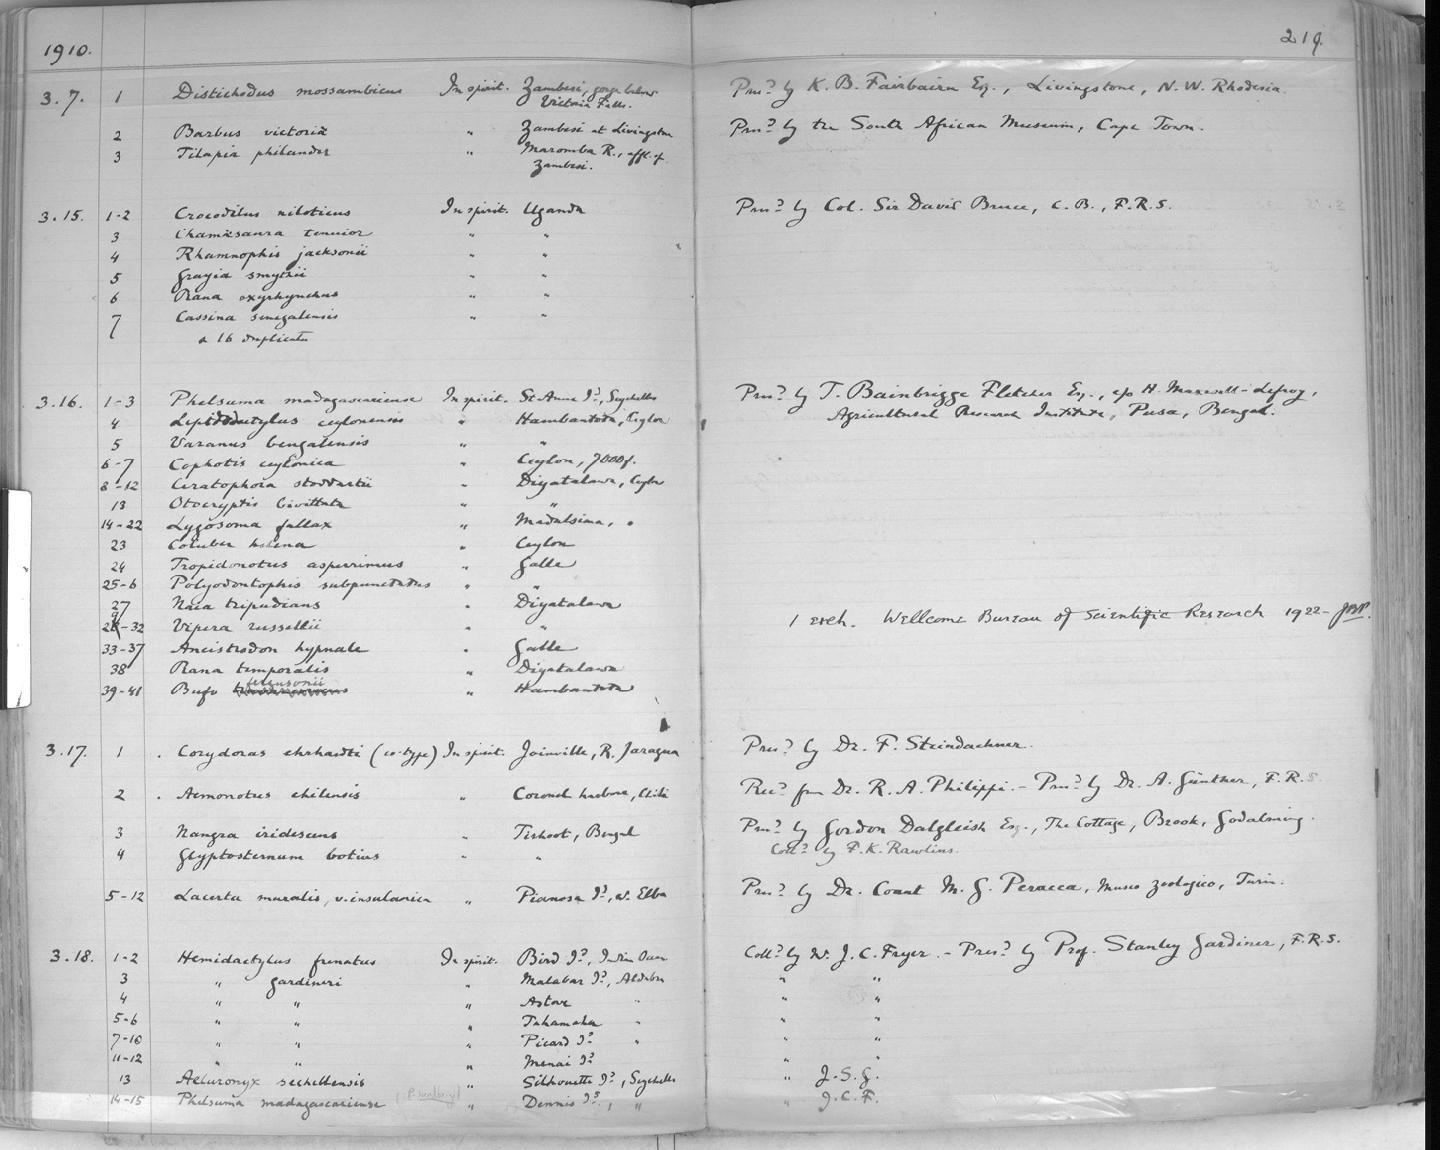 1910.
219.
3.7. 1 Distichodus mossambicus In spirit. Zambesi, gorge below Presd by K. B. Fairbairn Esq., Livingstone, N. W. Rhodesia.
Victoria Falls.
2 Barbus victoriæ " Zambesi at Livingstone Presd by the South African Museum, Cape Town.
3 Tilapia philander " Maromba R., affl. of
Zambesi.
3.15. 1-2 Crocodilus niloticus In spirit. Uganda Presd by Col. Sir David Bruce, C.B., F.R.S.
3 Chamæsaura tenuior " "
4 Rhamnophis jacksonii " "
5 Grayia smythii " "
6 Rana oxyrhynchus " "
7 Cassina senegalensis " "
& 16 duplicates
3.16. 1-3 Phelsuma madagascariense In spirit. St Anne Id, Seychelles Presd by T. Bainbrigge Fletcher Esq., c/o H. Maxwell-Lefroy,
4 Leptodactylus ceylonensis " Hambantota, Ceylon Agricultural Research Institute, Pusa, Bengal.
5 Varanus bengalensis " "
6-7 Cophotis ceylanica " Ceylon, 7000f.
8-12 Ceratophora stoddartii " Diyatalawa, Ceylon
13 Otocryptis bivittata " "
14-22 Lygosoma fallax " Madulsima, "
23 Coluber helena " Ceylon
24 Tropidonotus asperrimus " Galle
25-6 Polyodontophis subpunctatus " "
27 Naia tripudians " Diyatalawa
29-32 Vipera russellii " " 1 exch. Wellcome Bureau of Scientific Research 1922-
33-37 Ancistrodon hypnale " Galle
38 Rana temporalis " Diyatalawa
39-41 Bufo fergusonii " Hambantota
3.17. 1 . Corydoras ehrhardti (co-type) In spirit. Joinville, R. Jaragua Presd by Dr. F. Steindachner.
2 . Aemonotus chilensis " Coronel harbour, Chili Recd from Dr. R. A. Philippi. - Presd by Dr. A. Günther, F.R.S.
3 Nangra iridescens " Tirhoot, Bengal Presd by Gordon Dalgliesh Esq., The Cottage, Brook, Godalming.
4 Glyptosternum botius " " Colld by F. K. Rawlins.
5-12 Lacerta muralis, v. insularica " Pianosa Id, w. Elba Presd by Dr. Count M. G. Peracca, Museo Zoologico, Turin.
3.18. 1-2 Hemidactylus frenatus In spirit. Bird Id, Indian Ocean Colld by W. J. C. Fryer. - Presd by Prof. Stanley Gardiner, F.R.S.
3 " gardineri " Malabar Id, Aldabra " "
4 " " " Astove " " "
5-6 " " " Takamaka " " "
7-10 " " " Picard Id " " "
11-12 " " " Menai Id " "
13 Aeluronyx sechellensis " Silhouette Id, Seychelles " J. S. G.
14-15 Phelsuma madagascariense " Dennis Id, " " J. C. F.